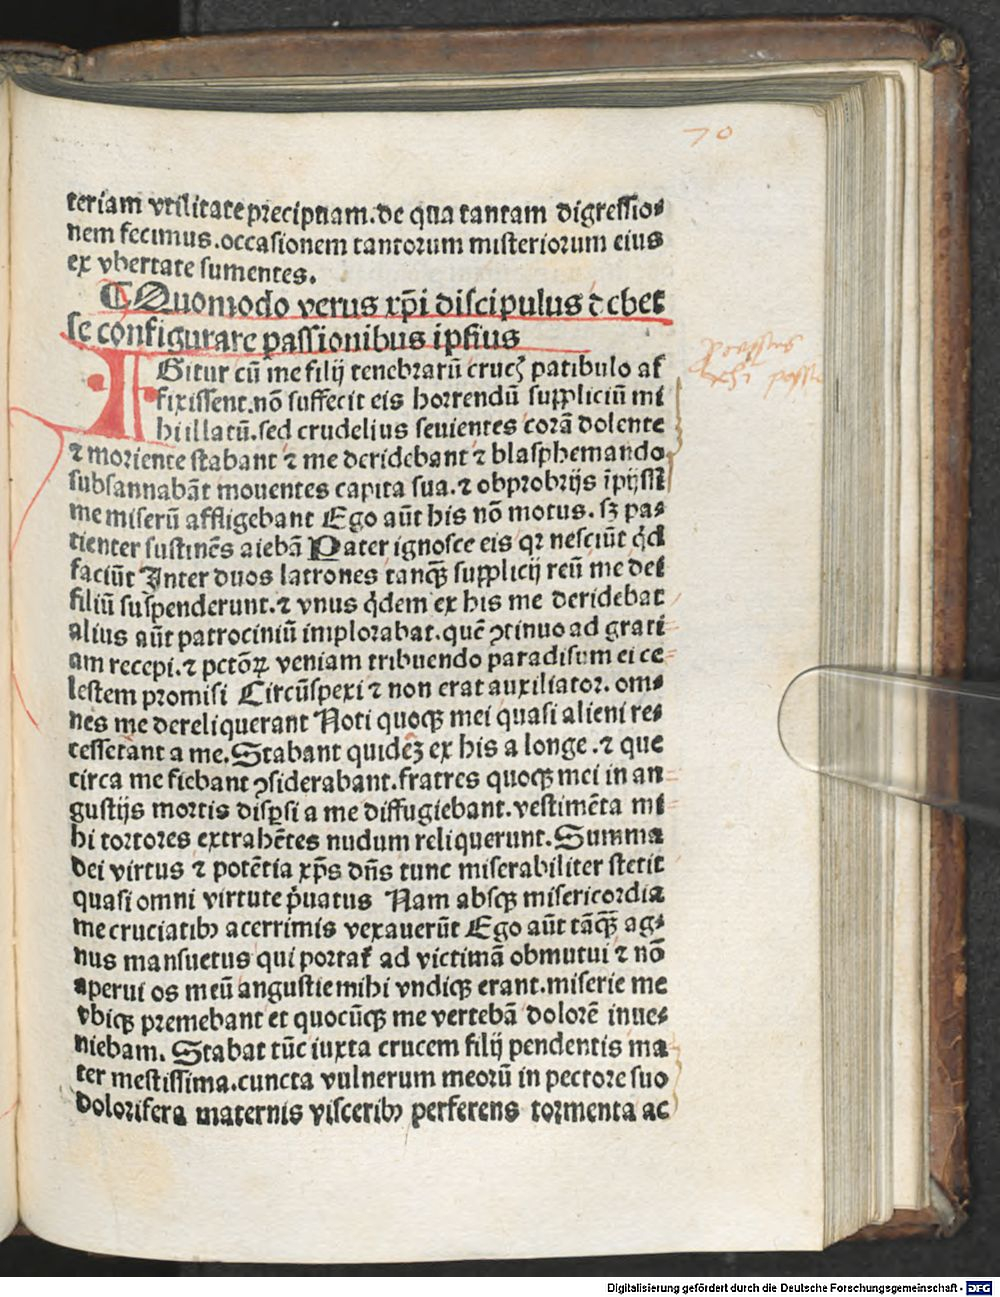 70
teriam vtilitate precipuam. de qua tantam digressio-
nem fecimus. occasionem tantorum misteriorum eius
ex vbertate sumentes.
¶ Quomodo verus xp̄i discipulus debet
se configurare passionibus ipsius
IGitur cū me filij tenebrarū crucꝭ patibulo af
fixissent. nō suffecit eis horrendū suppliciū mi
hi illatū. sed crudelius seuientes corā dolente
⁊ moriente stabant ⁊ me deridebant ⁊ blasphemando
subsannabāt mouentes capita sua. ⁊ obprobrijs īpijssi
me miserū affligebant Ego aūt his nō motus. sꝫ pa-
tienter sustinēs aiebā Pater ignosce eis qꝛ nesciūt qd̄
faciūt Inter duos latrones tanqꝫ supplicij reū me dei
filiū suspenderunt. ⁊ vnus qdem ex his me deridebat
alius aūt patrociniū implorabat. quē ꝯtinuo ad grati-
am recepi. ⁊ pctōꝝ veniam tribuendo paradisum ei ce-
lestem promisi Circūspexi ⁊ non erat auxiliator. om-
nes me dereliquerant Noti quoqꝫ mei quasi alieni re-
cesserant a me. Stabant quideꝫ ex his a longe. ⁊ que
circa me fiebant ꝯsiderabant. fratres quoqꝫ mei in an-
gustijs mortis disꝑsi a me diffugiebant. vestimēta mi-
hi tortores extrahētes nudum reliquerunt. Summa
dei virtus ⁊ potētia xp̄s dn̄s tunc miserabiliter stetit
quasi omni virtute p̄uatus Nam absqꝫ misericordia
me cruciatibꝫ acerrimis vexauerūt Ego aūt tāqꝫ ag-
nus mansuetus qui portat̄ ad victimā obmutui ⁊ nō
aperui os meū angustie mihi vndiqꝫ erant. miserie me
vbiqꝫ premebant et quocūqꝫ me vertebā dolorē inue-
niebam. Stabat tūc iuxta crucem filij pendentis ma
ter mestissima. cuncta vulnerum meorū in pectore suo
dolorifera maternis visceribꝫ perferens tormenta ac
Digitalisierung gefördert durch die Deutsche Forschungsgemeinschaft - DFG